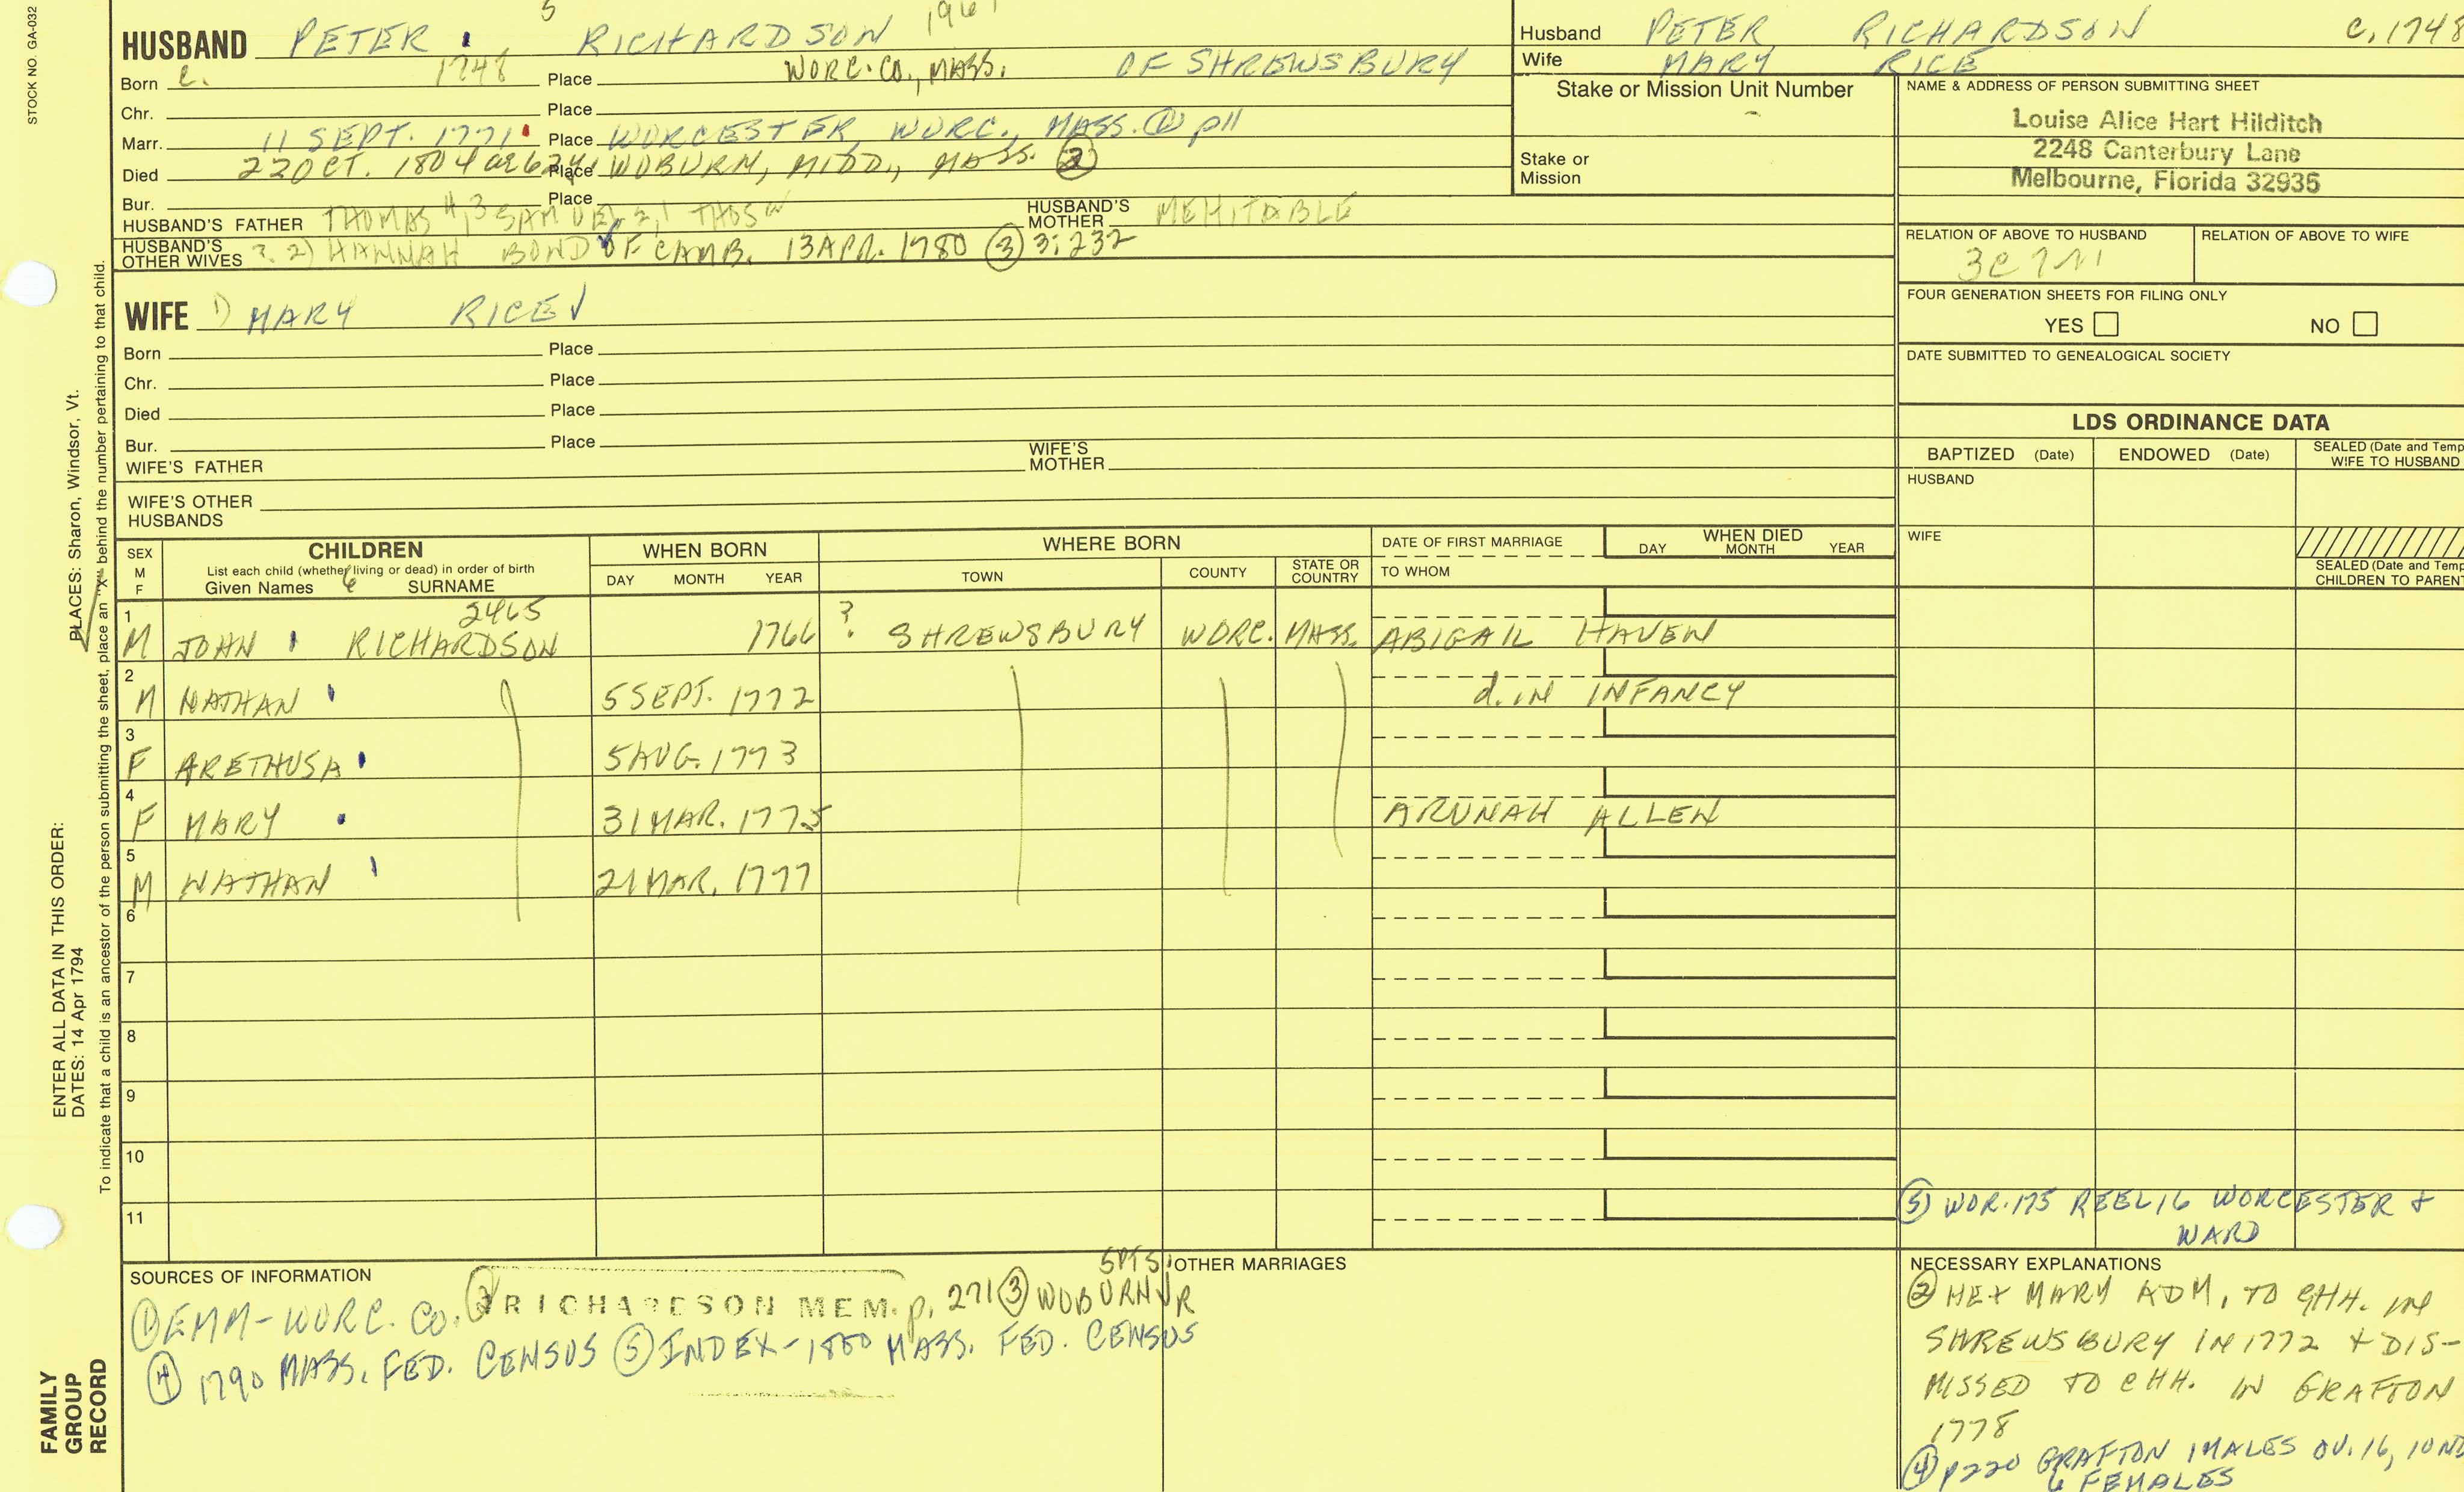 STOCK NO. GA-032
5 1961
HUSBAND PETER RICHARDSON
Born c. 1748 Place WORC. CO., MASS. OF SHREWSBURY
Chr. Place
Marr. 11 SEPT. 1771 Place WORCESTER, WORC., MASS. ① p11
Died 22 OCT. 1804 ae 62y Place WOBURN, MIDD., MASS. ②
Bur. Place
HUSBAND'S FATHER THOMAS 4,3 SAMUEL 2,1 THOS HUSBAND'S MOTHER MEHITABLE
HUSBAND'S OTHER WIVES ? 2) HANNAH BOND OF CAMB. 13 APR. 1780 ③ 3:232
WIFE 1) MARY RICE
Born Place
Chr. Place
Died Place
Bur. Place
WIFE'S FATHER WIFE'S MOTHER
WIFE'S OTHER HUSBANDS
Husband PETER RICHARDSON c. 1748
Wife MARY RICE
Stake or Mission Unit Number
Stake or Mission
NAME & ADDRESS OF PERSON SUBMITTING SHEET
Louise Alice Hart Hilditch
2248 Canterbury Lane
Melbourne, Florida 32935
RELATION OF ABOVE TO HUSBAND RELATION OF ABOVE TO WIFE
3C
FOUR GENERATION SHEETS FOR FILING ONLY
YES NO
DATE SUBMITTED TO GENEALOGICAL SOCIETY
LDS ORDINANCE DATA
BAPTIZED (Date) ENDOWED (Date) SEALED (Date and Temp
WIFE TO HUSBAND
HUSBAND
WIFE
SEALED (Date and Temp
CHILDREN TO PARENT
SEX M F CHILDREN WHEN BORN WHERE BORN DATE OF FIRST MARRIAGE WHEN DIED
List each child (whether living or dead) in order of birth
Given Names 6 SURNAME DAY MONTH YEAR TOWN COUNTY STATE OR COUNTRY TO WHOM DAY MONTH YEAR
2465
1 M JOHN RICHARDSON 1766 ? SHREWSBURY WORC. MASS. ABIGAIL HAVEN
2 M NATHAN 5 SEPT. 1772 d. IN INFANCY
3 F ARETHUSA 5 AUG. 1773
4 F MARY 31 MAR. 1775 ARUNAH ALLEN
5 M NATHAN 21 MAR. 1777
6
7
8
9
10
11
⑤ WOR. 175 REEL 16 WORCESTER +
WARD
SOURCES OF INFORMATION
① EMM-WORC. CO. ② RICHARDSON MEM. p. 271 ③ WOBURN VR
④ 1790 MASS. FED. CENSUS ⑤ INDEX-1800 MASS. FED. CENSUS
OTHER MARRIAGES
NECESSARY EXPLANATIONS
② HE + MARY ADM. TO CHH. IN
SHREWSBURY IN 1772 + DIS-
MISSED TO CHH. IN GRAFTON
1778
④ p220 GRAFTON 1 MALES OV. 16, 1 UND
6 FEMALES
PLACES: Sharon, Windsor, Vt.
ENTER ALL DATA IN THIS ORDER:
DATES: 14 Apr 1794
To indicate that a child is an ancestor of the person submitting the sheet, place an "X" behind the number pertaining to that child.
FAMILY
GROUP
RECORD